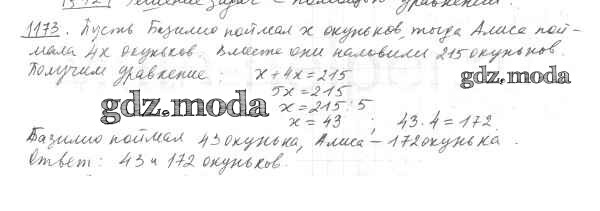 1173. Пусть Базилио поймал x окуньков, тогда Алиса пой-
мала 4x окуньков. Вместе они наловили 215 окуньков.
Получим уравнение: x + 4x = 215
gdz.moda
5x = 215
gdz.moda
x = 215 : 5
x = 43 ; 43 · 4 = 172.
Базилио поймал 43 окунька, Алиса – 172 окунька.
Ответ: 43 и 172 окуньков.